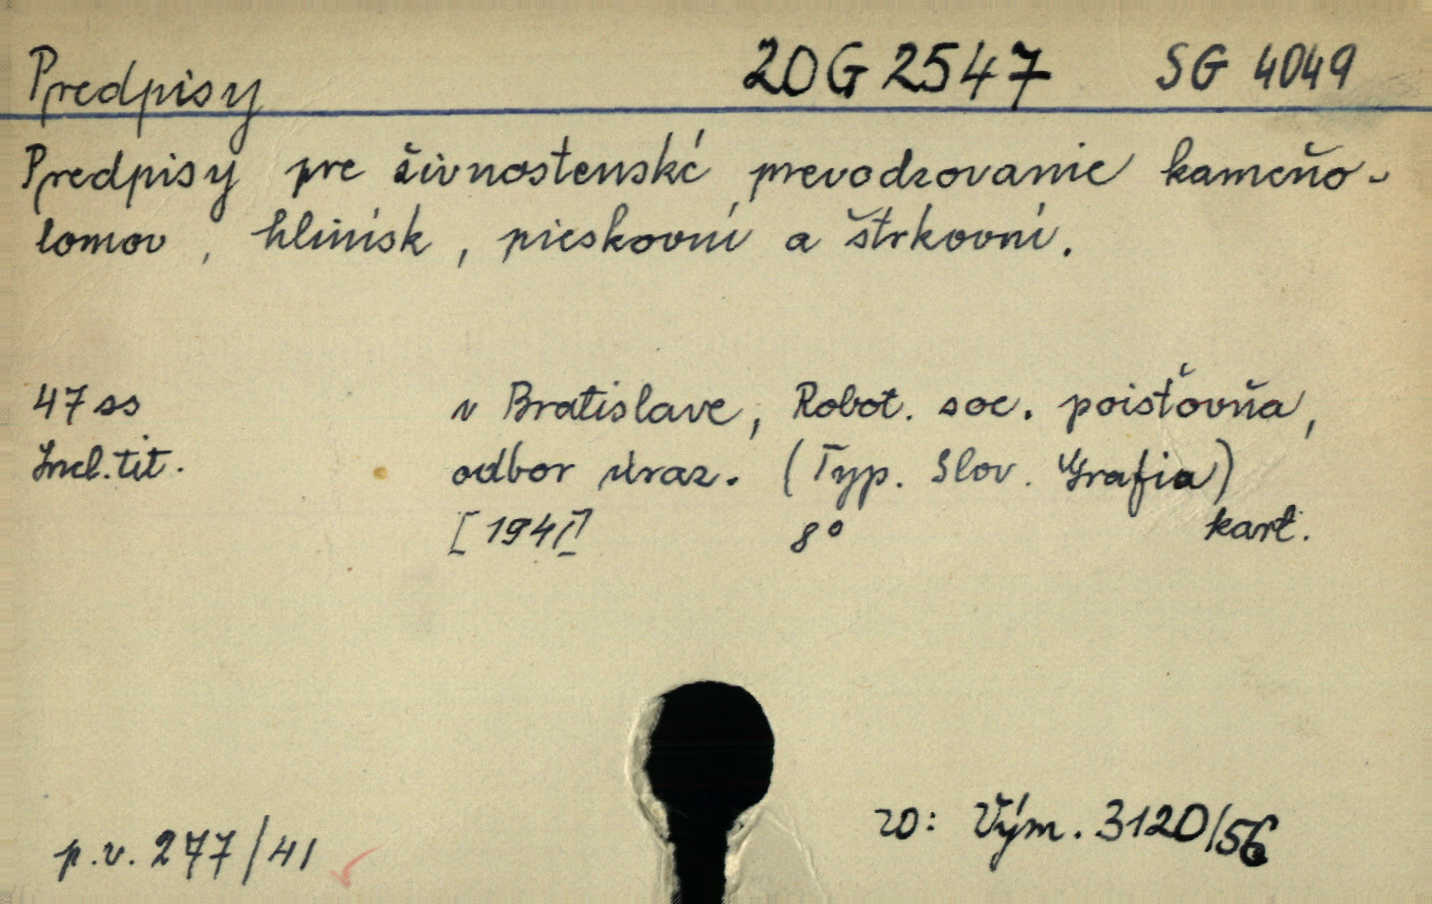 Predpisy 20G 2547 SG 4049
Predpisy pre živnostenské prevodzovanie kameňo-
lomov, hlinísk, pieskovní a štrkovní.
47 ss v Bratislave, Robot. soc. poisťovňa,
Incl. tit. odbor úraz. (Typ. Slov. Grafia)
[1941] 8° kart.
p.v. 277/41 ro: Vým. 3120/56